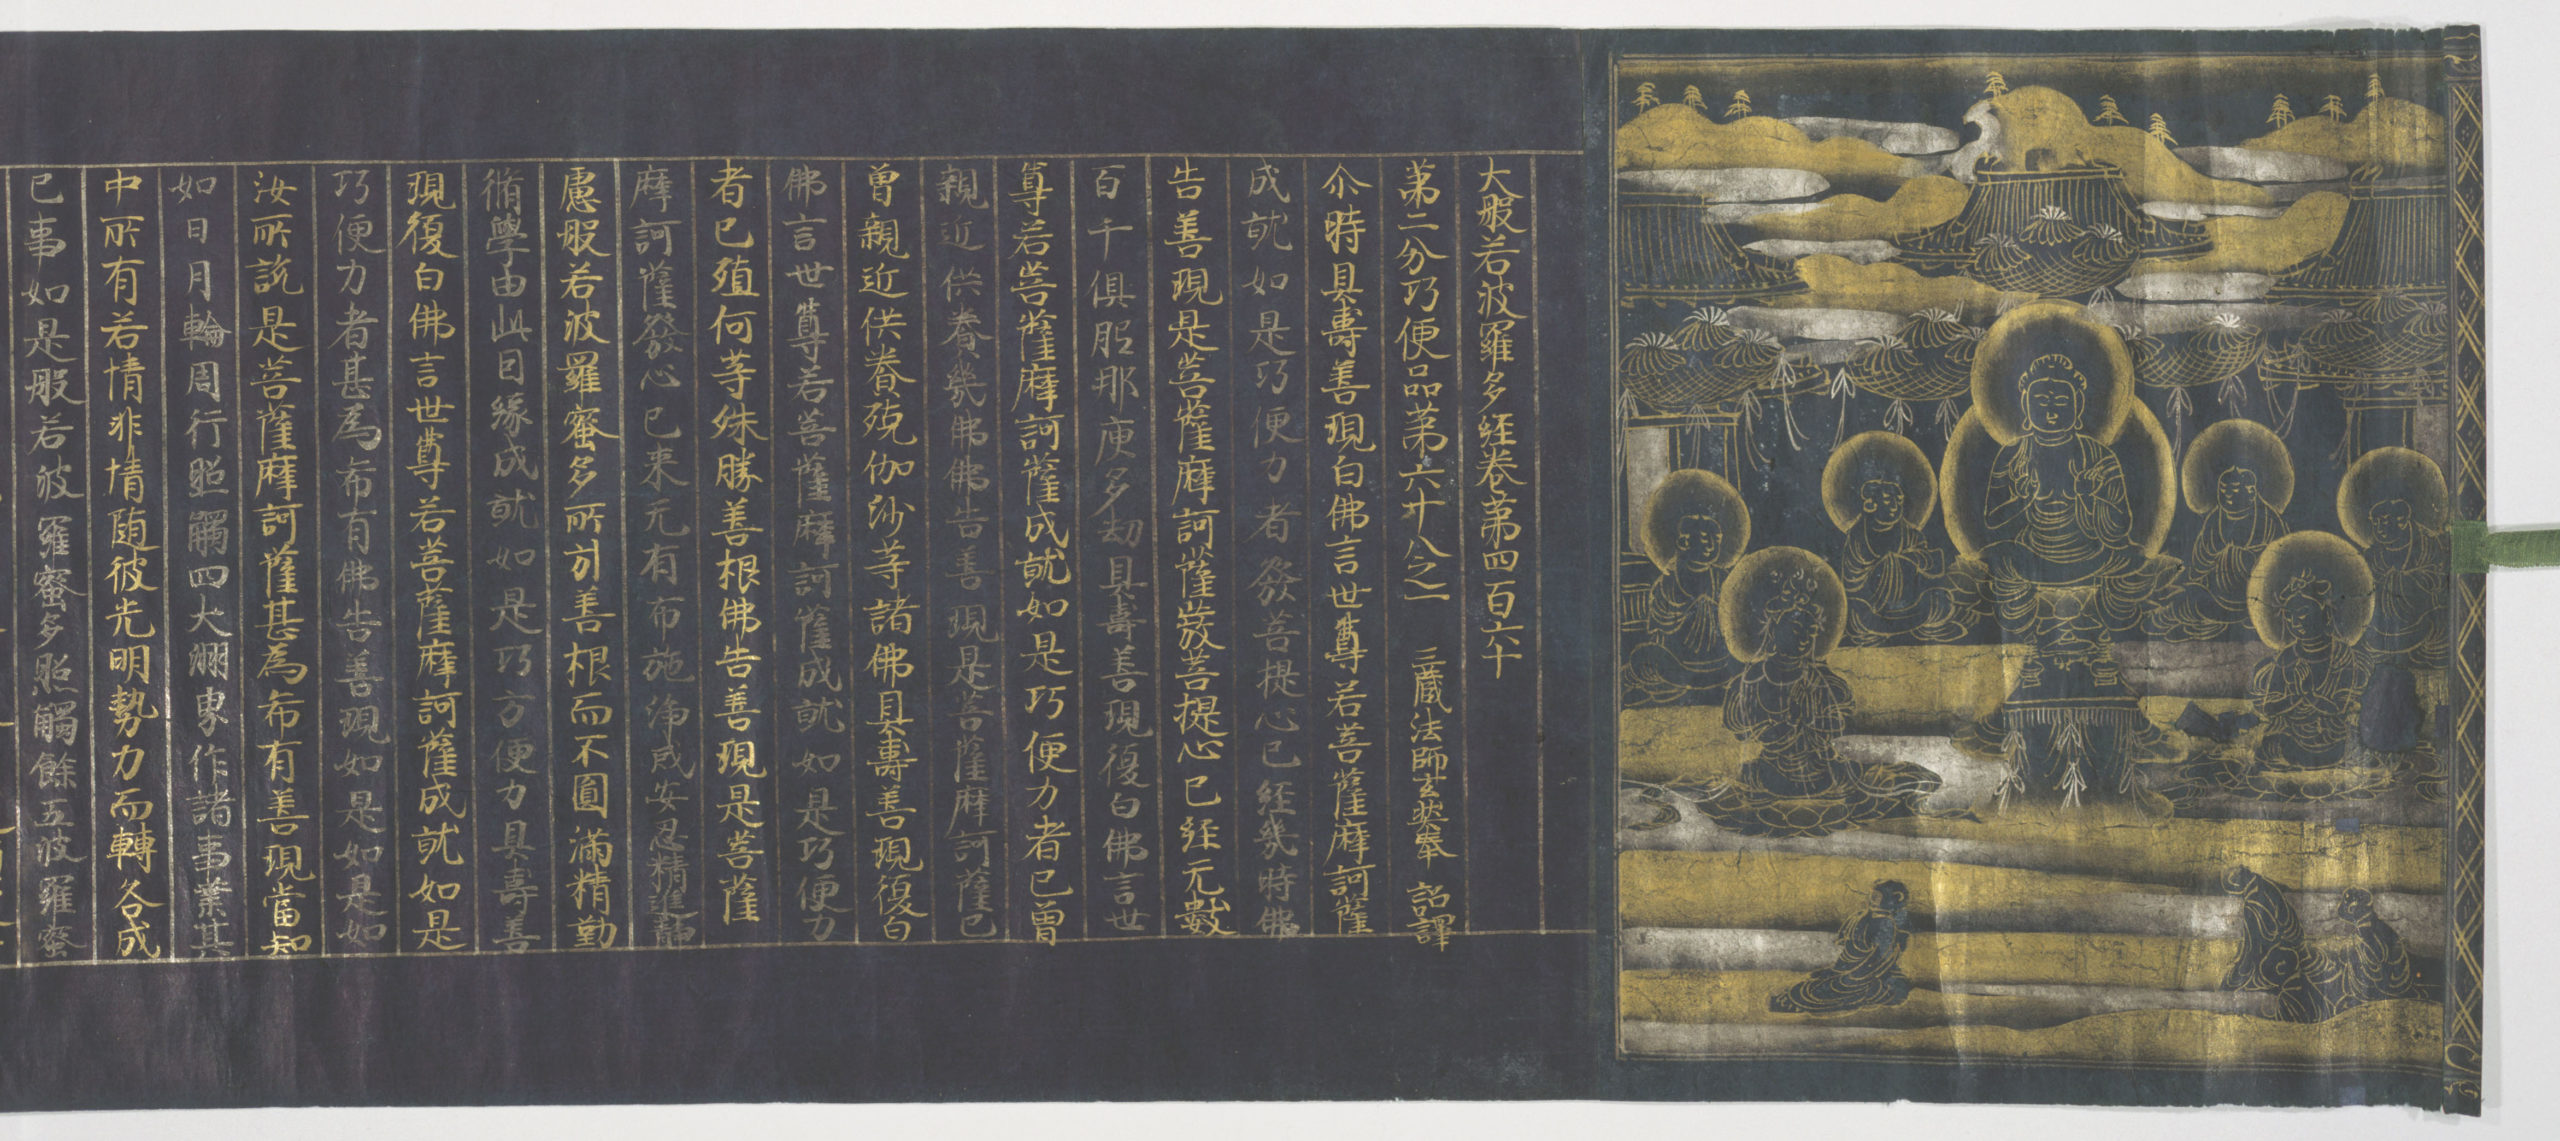 大般若波羅多経卷第四百六十
第二分巧便品第六十八之一　三藏法師玄奘奉　詔譯
尒時具壽善現白佛言世尊若菩薩摩訶薩
成就如是巧便力者發菩提心已経幾時佛
告善現是菩薩摩訶薩發菩提心已経无數
百千俱胝那庾多劫具壽善現復白佛言世
尊若菩薩摩訶薩成就如是巧便力者已曾
親近供養幾佛佛告善現是菩薩摩訶薩已
曽親近供養殑伽沙等諸佛具壽善現復白
佛言世尊若菩薩摩訶薩成就如是巧便力
者已殖何等殊勝善根佛告善現是菩薩
摩訶薩發心已来无有布施浄戒安忍精進静
慮般若波羅蜜多所引善根而不圓滿精勤
脩學由此因緣成就如是巧方便力具壽善
現復白佛言世尊若菩薩摩訶薩成就如是
巧便力者甚為希有佛告善現如是如是如
汝所説是菩薩摩訶薩甚為希有善現當知
如日月輪周行照觸四大洲界作諸事業其
中所有若情非情随彼光明勢力而轉各成
已事如是般若波羅蜜多照觸餘五波羅蜜